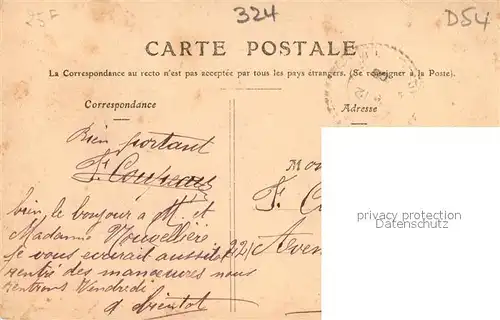 25F
324
D54
CARTE POSTALE
La Correspondance au recto n'est pas acceptée par tous les pays étrangers. (Se renseigner à la Poste).
Correspondance
Adresse
Bien portant
F. Coupeau
bien le bonjour à M. et
Madame
je vous écrirait aussitôt
rentré des manœuvres nous
rentrons Vendredi
à bientot
Mo
F. C
22
Aven
privacy protection
Datenschutz